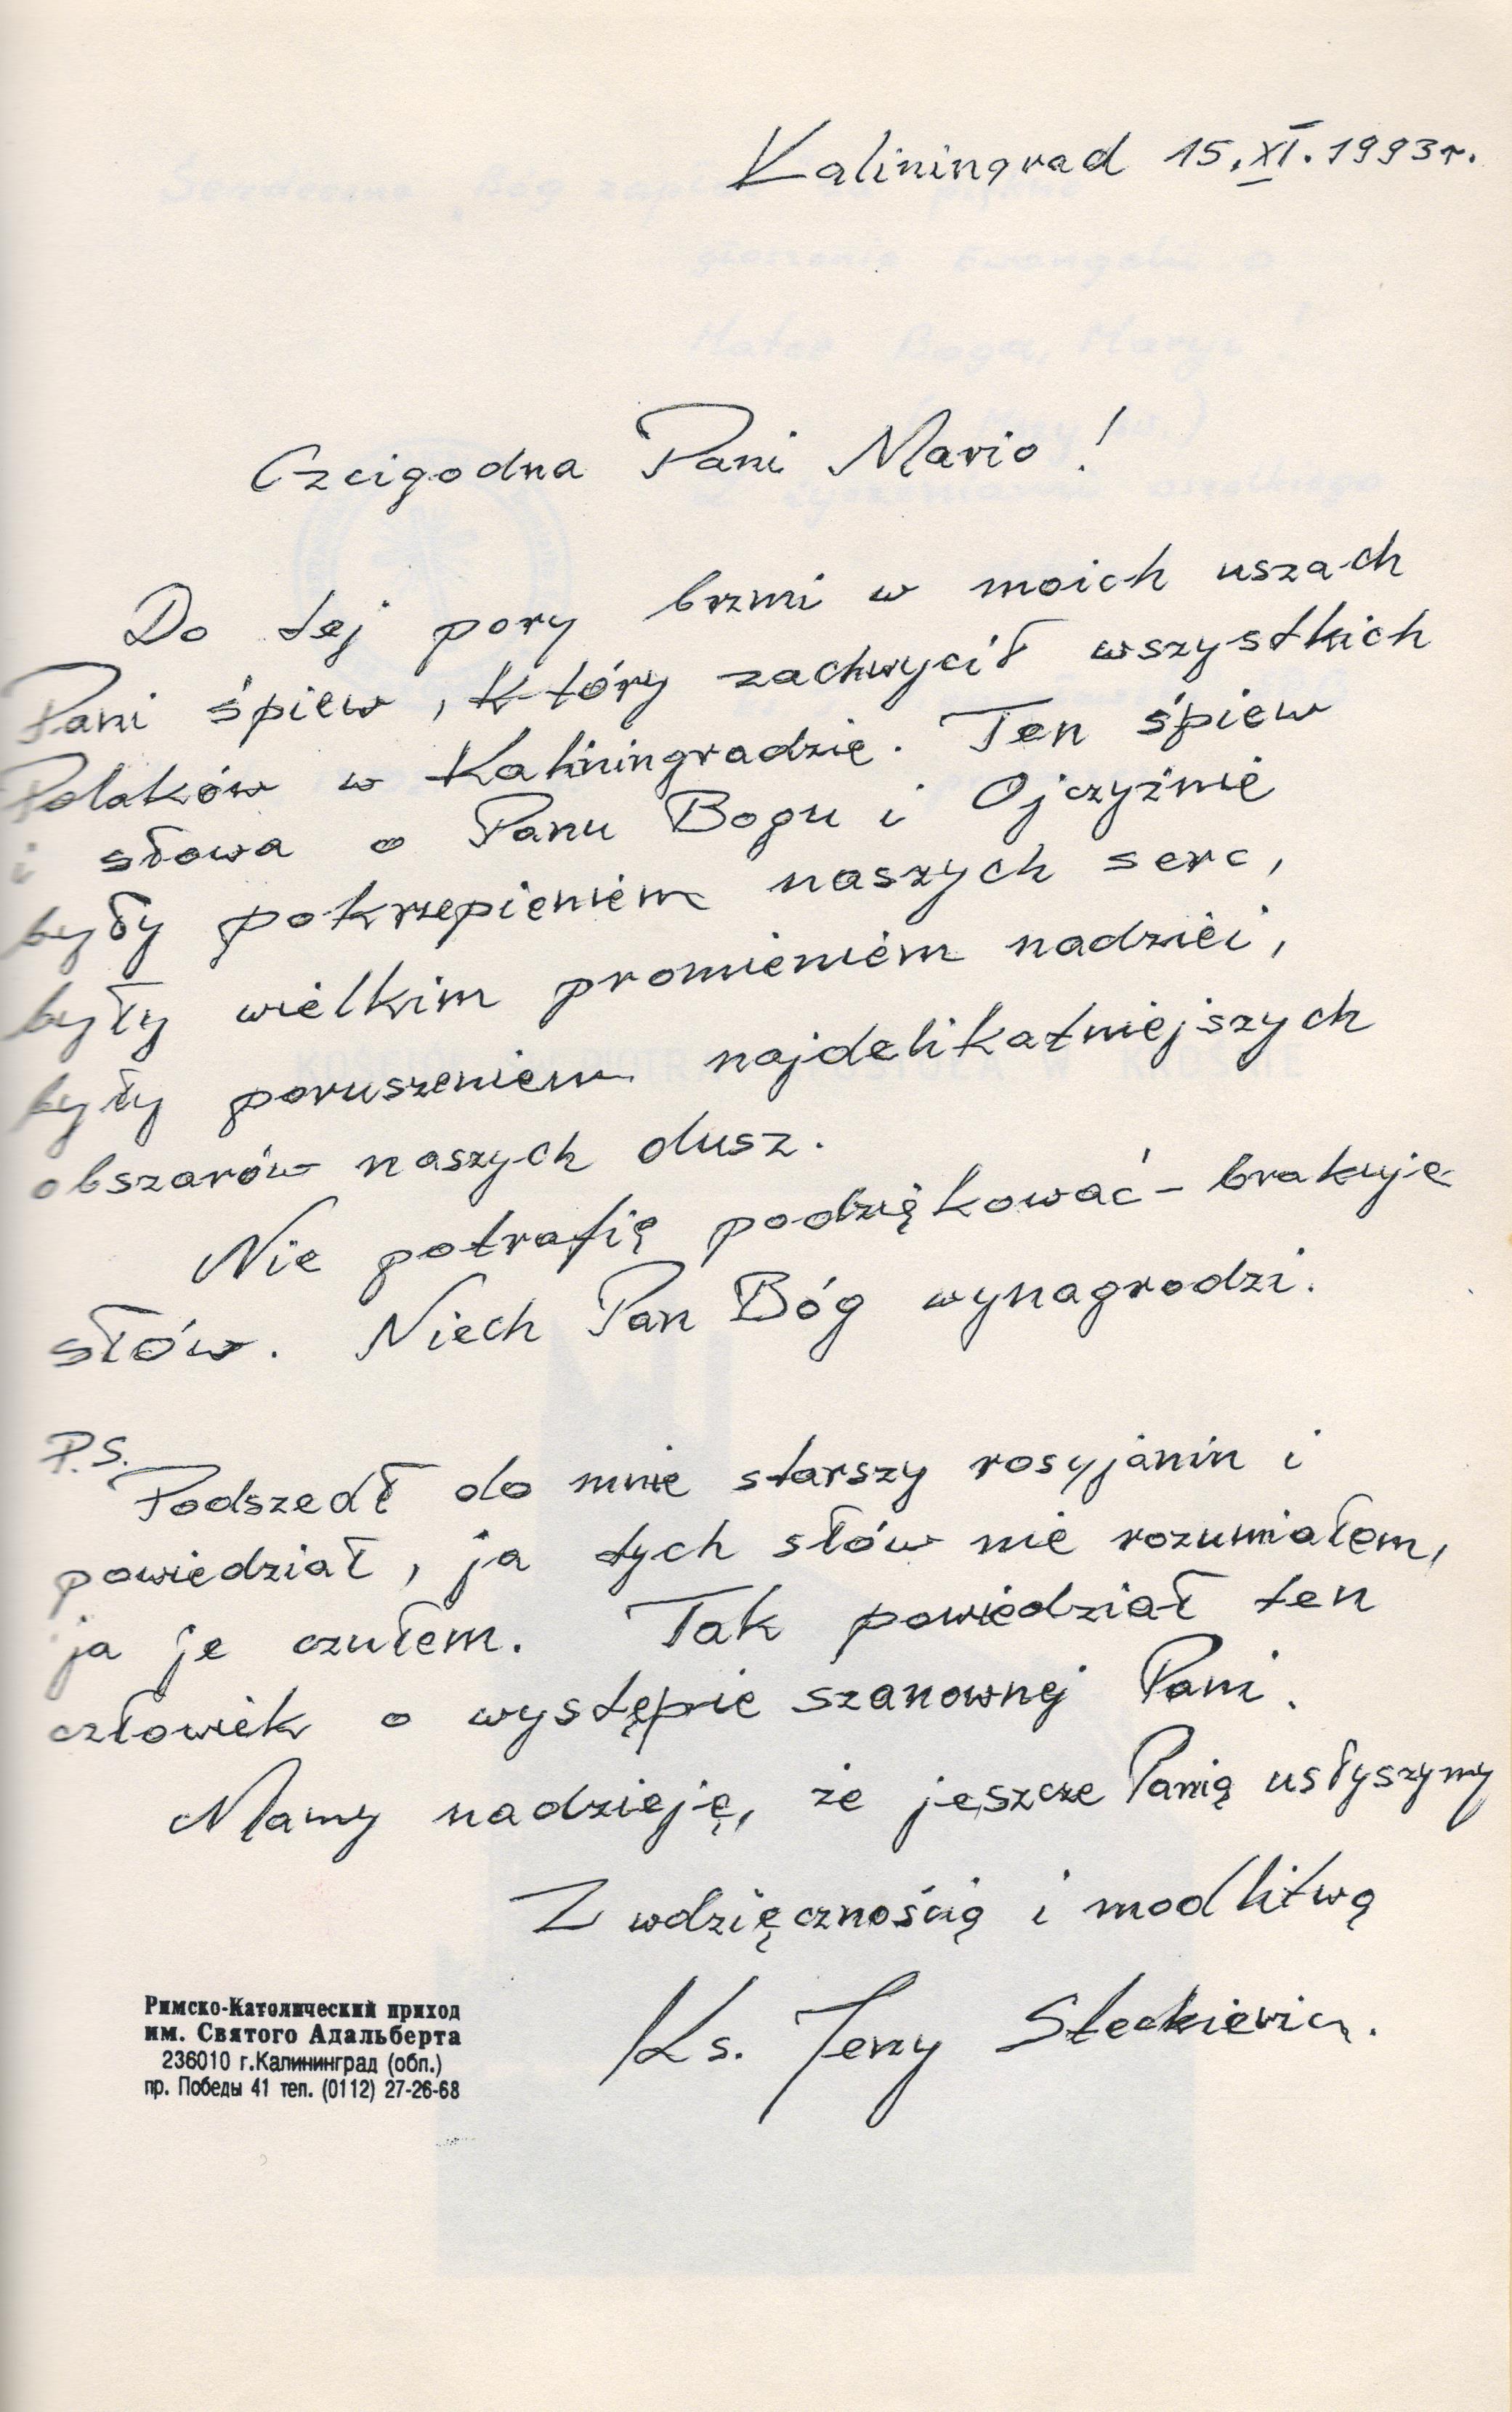 Kaliningrad 15.XI.1993r.
Czcigodna Pani Mario!
Do tej pory brzmi w moich uszach
Pani śpiew, który zachwycił wszystkich
Polaków w Kaliningradzie. Ten śpiew
i słowa o Panu Bogu i Ojczyźnie
były pokrzepieniem naszych serc,
były wielkim promieniem nadziei,
były poruszeniem najdelikatniejszych
obszarów naszych dusz.
Nie potrafię podziękować - brakuje
słów. Niech Pan Bóg wynagrodzi.
P.S.
Podszedł do mnie starszy rosyjanin i
powiedział, ja tych słów nie rozumiałem,
ja je czułem. Tak powiedział ten
człowiek o występie szanownej Pani.
Mamy nadzieję, że jeszcze Panią usłyszymy
Z wdzięcznością i modlitwą
Ks. Jerzy Steckiewicz.
Римско-Католический приход
им. Святого Адальберта
236010 г.Калининград (обл.)
пр. Победы 41 тел. (0112) 27-26-68